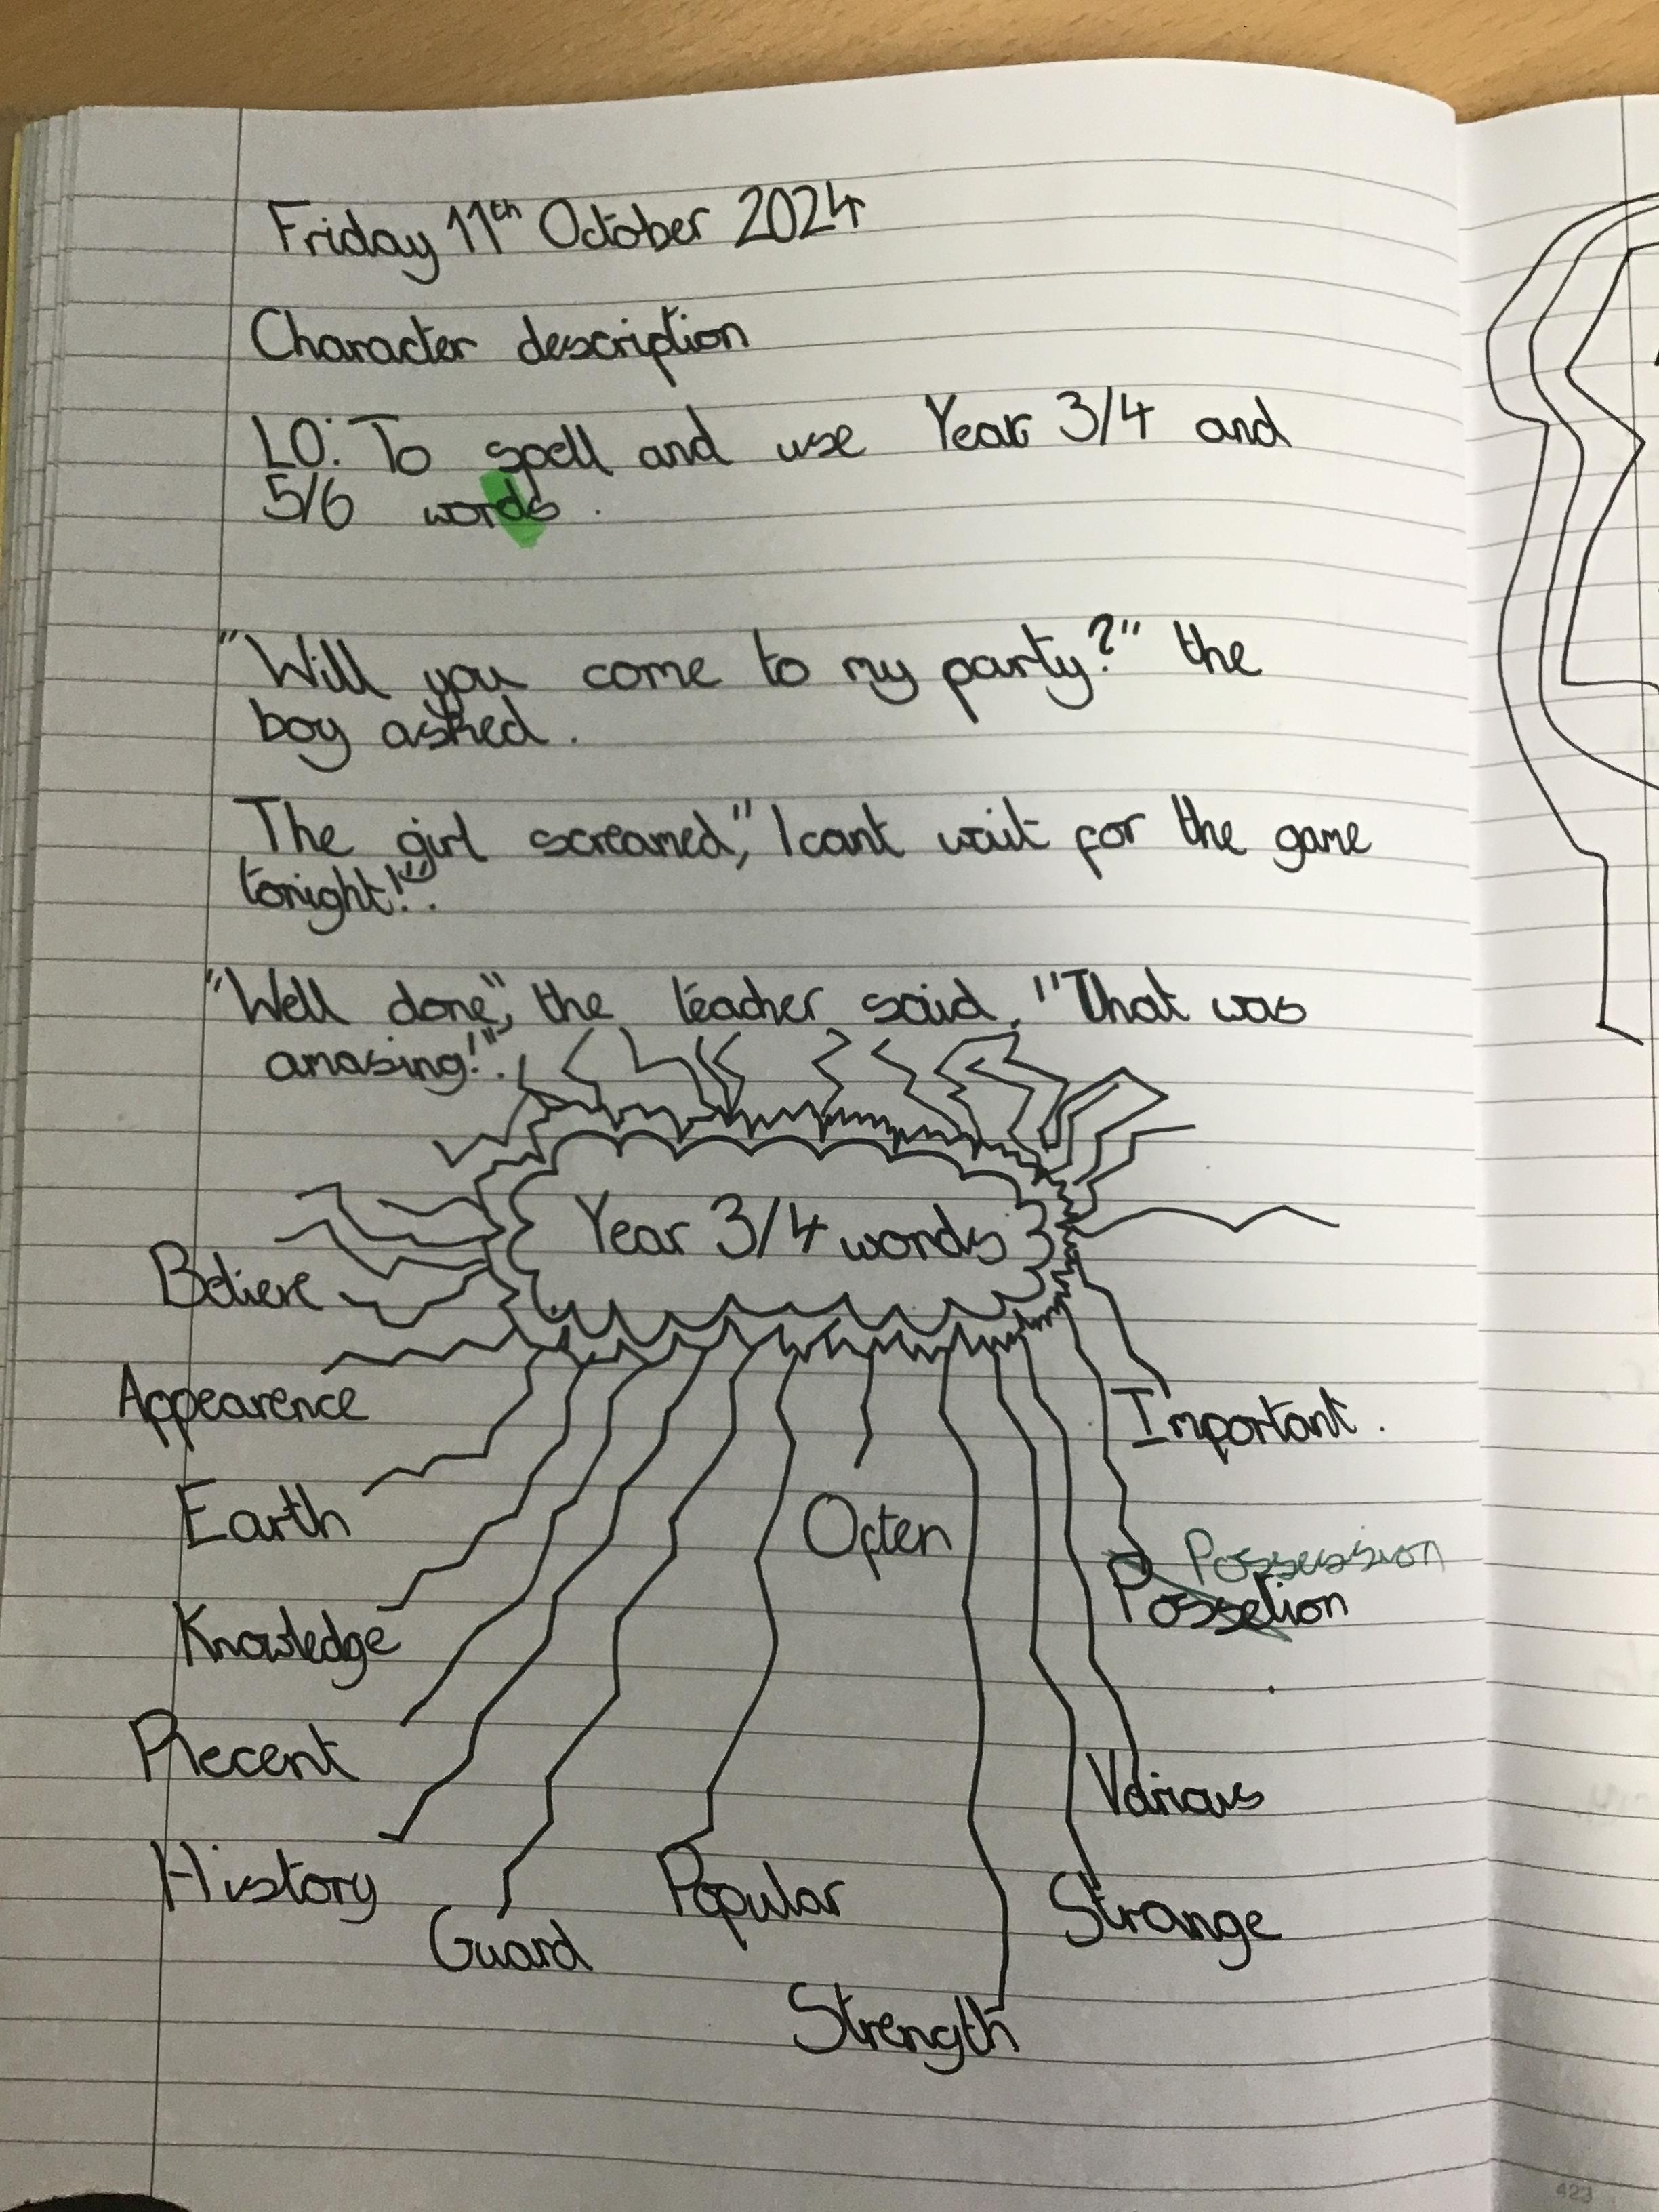 Friday 11th October 2024
Character description
LO: To spell and use Year 3/4 and
5/6 words.
"Will you come to my party?" the
boy asked.
The girl screamed," I cant wait for the game
tonight!".
"Well done", the teacher said, "That was
amasing!".
Year 3/4 words
Believe
Appearence
Important.
Earth
Often
Possession
Possetion
Knowledge
Recent
Various
History
Popular
Strange
Guard
Strength
423